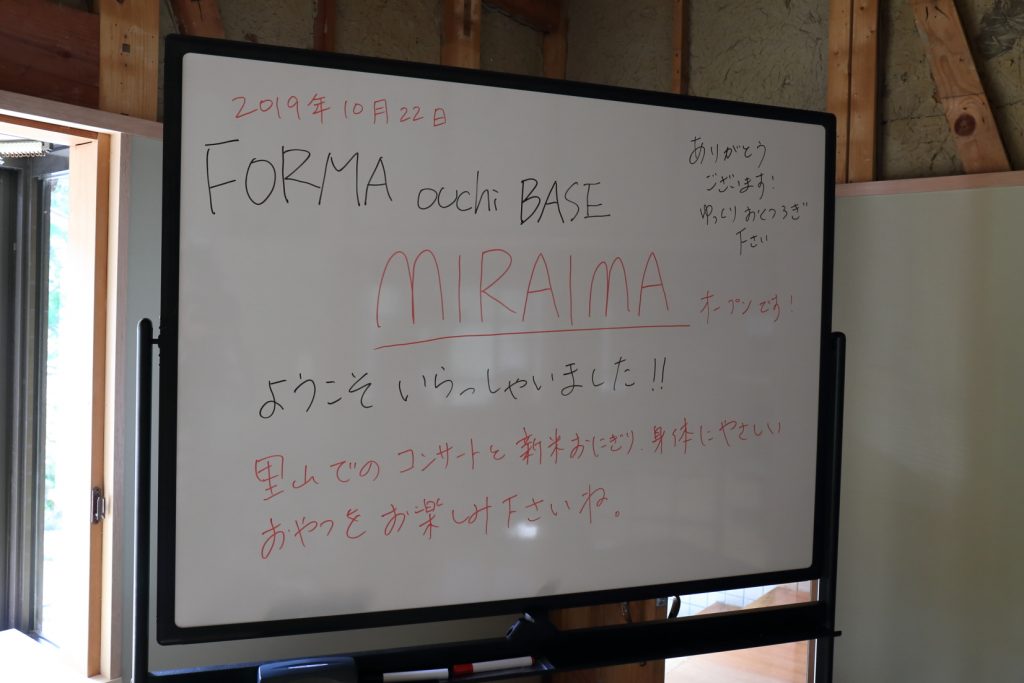 2019年10月22日
FORMA ouchi BASE
ありがとう
ございます!
ゆっくりおくつろぎ
下さい
MIRAIMA オープンです!
ようこそ いらっしゃいました!!
里山での コンサートと 新米おにぎり、身体にやさしい
おやつを お楽しみ下さいね。